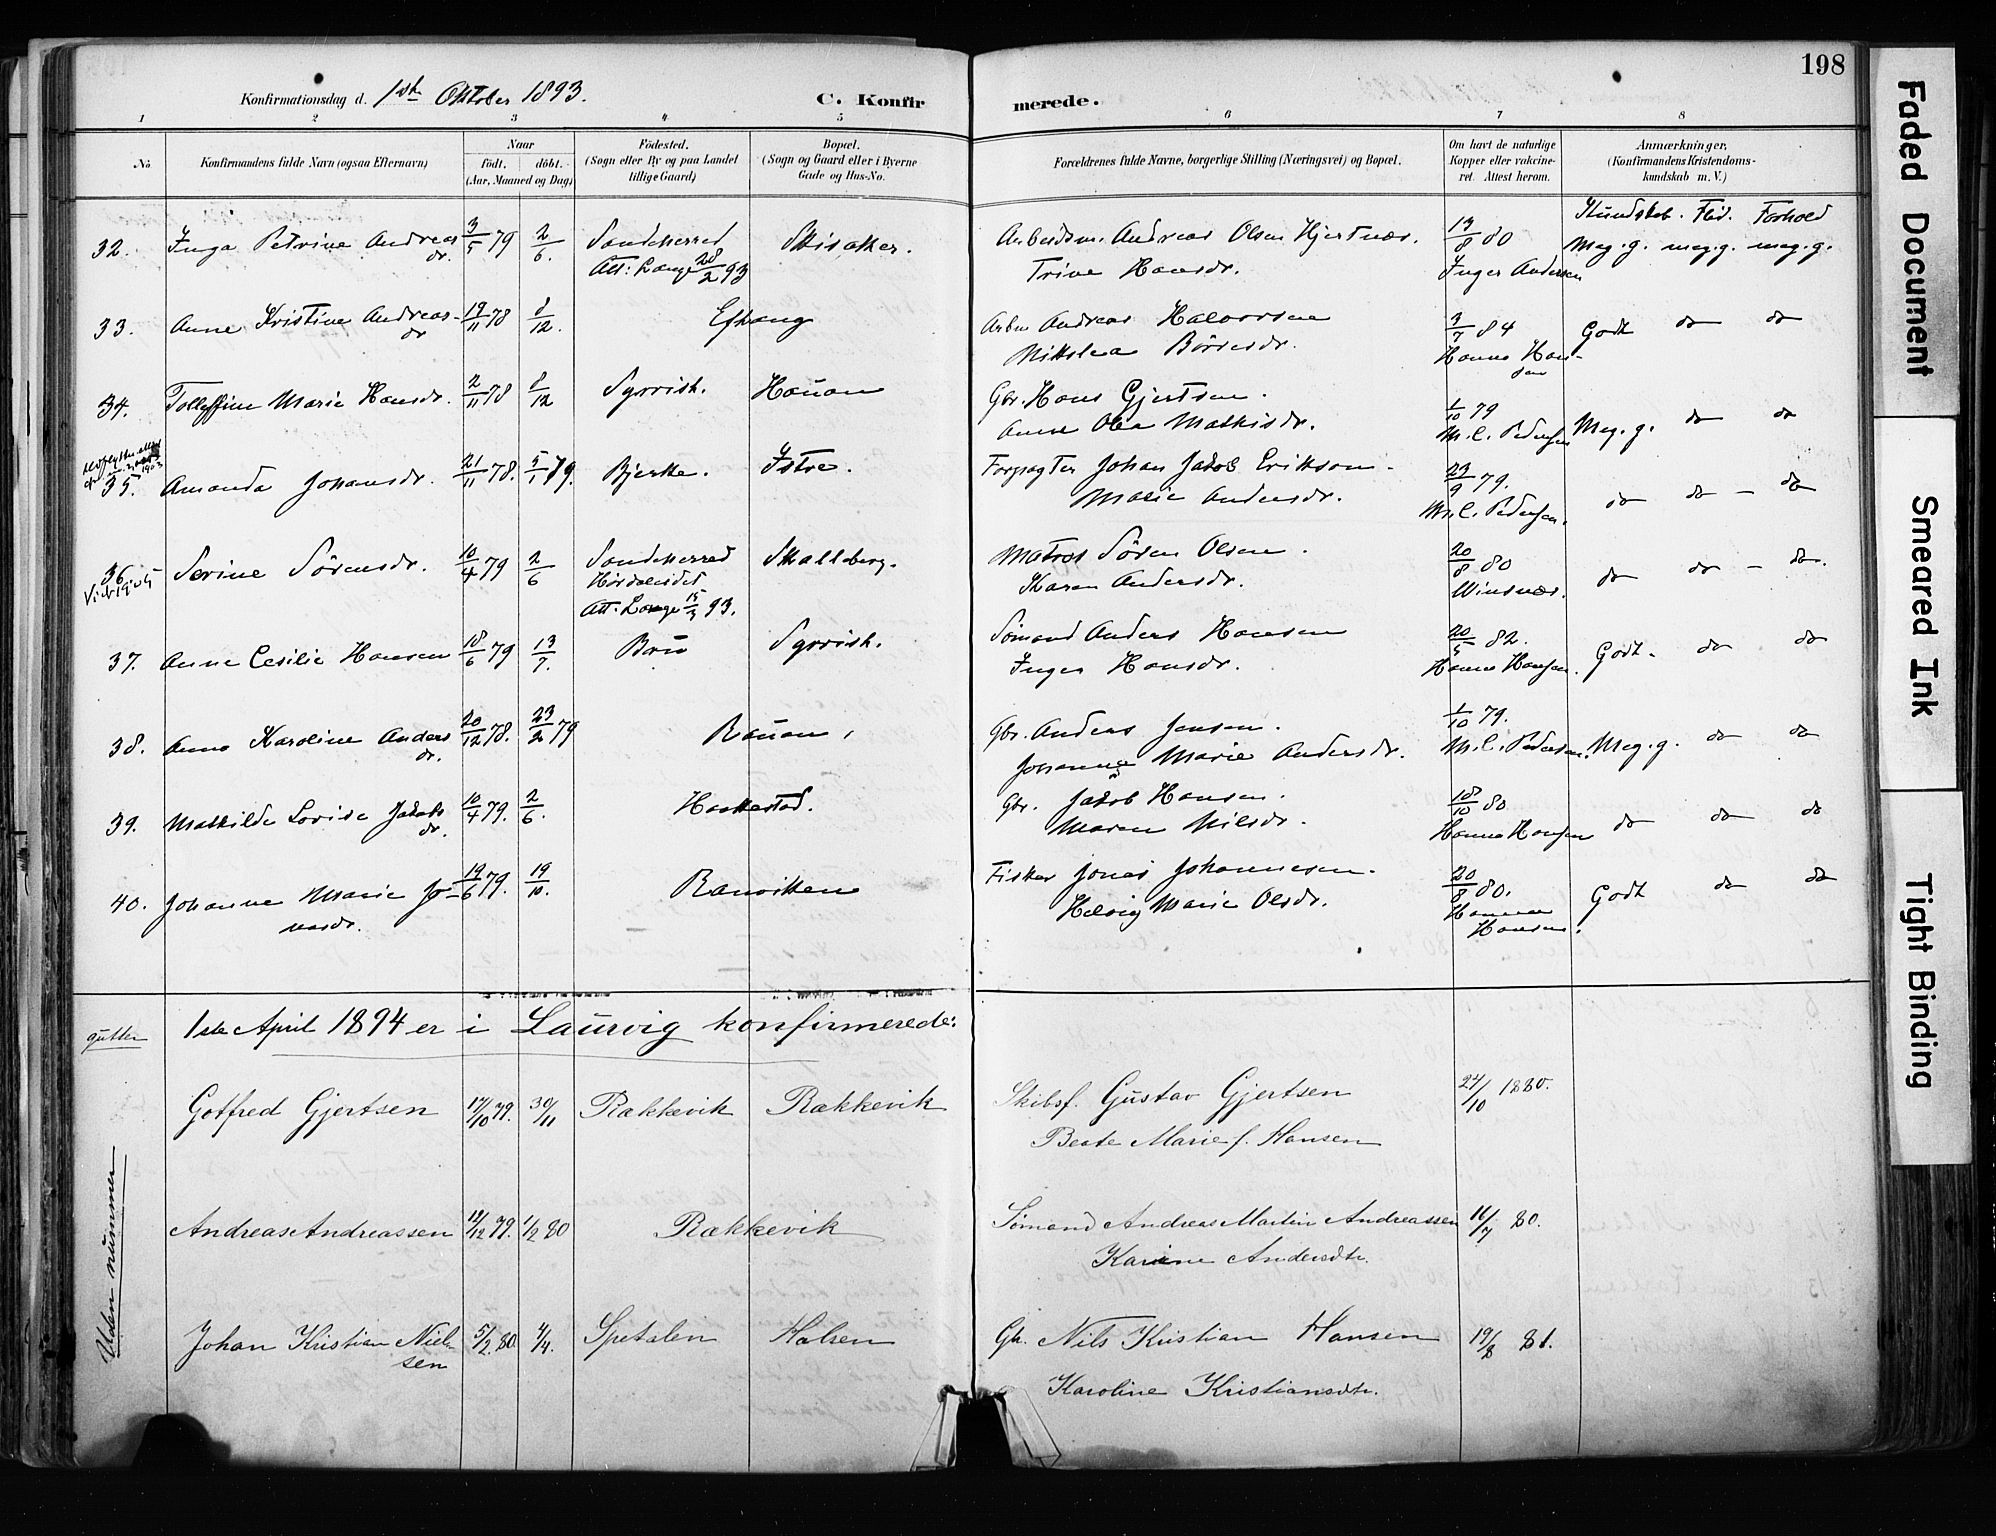 198
Konfirmationsdag d. 1ste Oktober 1893.
C. Konfirmerede.
1 2 3 4 5 6 7 8
No.
Konfirmandens fulde Navn (ogsaa Efternavn)
Naar
født. døbt.
(Aar, Maaned og Dag)
Fødested.
(Sogn eller By og paa Landet
tillige Gaard)
Bopæl.
(Sogn og Gaard eller i Byerne
Gade og Hus-No.
Forældrenes fulde Navne, borgerlige Stilling (Næringsvei) og Bopæl.
Om havt de naturlige
Kopper eller vakcine-
ret. Attest herom.
Anmærkninger.
(Konfirmandens Kristendoms-
kundskab m. V.)
Kundskab. Flid. Forhold
32. Inga Petrine Andreas 3/5 79 2/6. Sandeherred Skisaker. Arbeidsm. Andreas Olsen Hjertnæs. 13/8 80 Meg.g. meg.g. meg.g.
dr. Att: Lange 28/2 93 Trine Hansdr. Inger Andersen
33. Anne Kristine Andreas- 19/11 78 8/12. Efhang Arbm Andreas Halvorsen 3/7 84 Godt do do
dr Nikolea Börresdr. Hanna Han-
sen
34. Tolleffine Marie Hansdr. 2/11 78 8/12 Syrrist. Hauan Gbr. Hans Gjertsen. 1/10 79 Meg.g. do do
Anne Olea Mathisdr. M.C. Pedersen
35. Amanda Johansdr. 21/11 78. 5/1 79. Bjerke. Istre. Forpagter Johan Jakob Erikson 23/9 79. do do - do
Marie Andersdr. M.C. Pedersen.
36 Serine Sörensdr. 10/4 79 2/6 Sandeherred Skalleberg. Matros Sören Olsen. 20/8 80 do do - do.
Karen Andersdr. Winsnæs.
Att. Lange 15/3 93.
37. Anne Cesilie Hansen 18/6 79 13/7. Brū Syrrist. Sömand Anders Hansen 20/5 82. Godt. do do
Inger Hansdr. Hanna Hansen.
38. Anna Karoline Anders 20/12 78. 23/2 79 Rauan, Gbr. Anders Jensen. 1/10 79. Meg.g. do do
dr. Johanne Marie Andersdr. M.C. Pedersen.
39. Mathilde Lovise Jakobs 10/4 79. 2/6. Haakestad. Gbr. Jakob Hansen. 18/10 80 do do do
dr. Maren Nilsdr. Hanna Hansen
40. Johanne Marie Jo- 19/6 79. 19/10. Ranviken Fisker Jonas Johannesen. 20/8 80. Godt do do
nasdr. Helvig Marie Olsdr. Hanna
Hansen.
gutter 1ste April 1894 er i Laurvig konfirmerede:
Uden nummer
Gotfred Gjertsen 17/10 79. 30/11 Rækkevik Rækkevik Skibsf. Gustav Gjertsen 24/10 1880.
Beate Marie f. Hansen
Andreas Andreassen 12/12 79. 1/2 80 Rækkevik Sømand Andreas Martin Andreassen 16/7 80.
Karine Andersdtr.
Johan Kristian Niel- 5/2 80. 4/4. Spetalen Halsen Gb. Nils Kristian Hansen 19/8 81.
sen Karoline Kristiansdtr.
Faded Document
Smeared Ink
Tight Binding